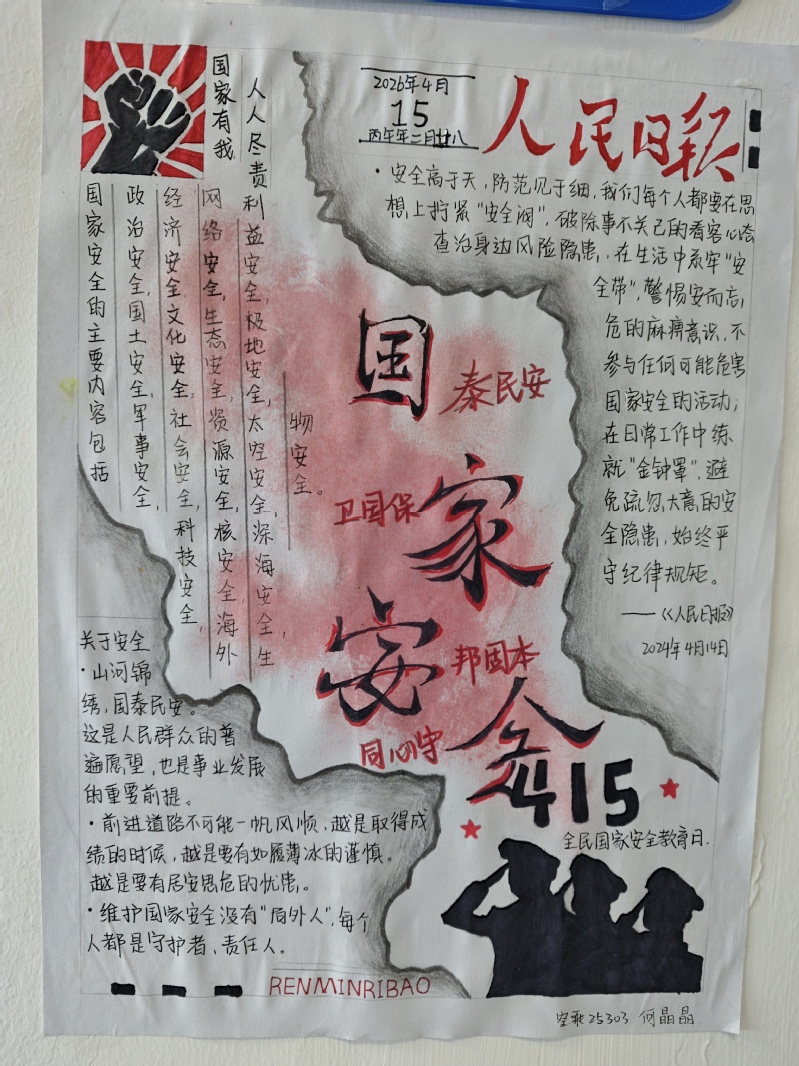 2026年4月
15
丙午年二月廿八
人民日报
国家有我
人人尽责
国家安全的主要内容包括
政治安全,国土安全,军事安全,
经济安全,文化安全,社会安全,科技安全,
网络安全,生态安全,资源安全,核安全,海外
利益安全,极地安全,太空安全,深海安全,生
物安全。
·安全高于天,防范见于细,我们每个人都要在思
想上拧紧“安全阀”,破除事不关己的看客心态
查治身边风险隐患,在生活中系牢“安
全带”,警惕安而忘
危的麻痹意识,不
参与任何可能危害
国家安全的活动;
在日常工作中练
就“金钟罩”,避
免疏忽大意的安
全隐患,始终严
守纪律规矩。
——《人民日报》
2024年4月14日
国
泰民安
卫国保
家
安
邦固本
同心守
全
415
全民国家安全教育日.
关于安全
·山河锦
绣,国泰民安。
这是人民群众的普
遍愿望,也是事业发展
的重要前提。
·前进道路不可能一帆风顺,越是取得成
绩的时候,越是要有如履薄冰的谨慎。
越是要有居安思危的忧患。
·维护国家安全没有“局外人”,每个
人都是守护者,责任人。
RENMINRIBAO
空乘25303 何晶晶